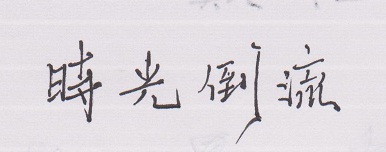 時光倒流